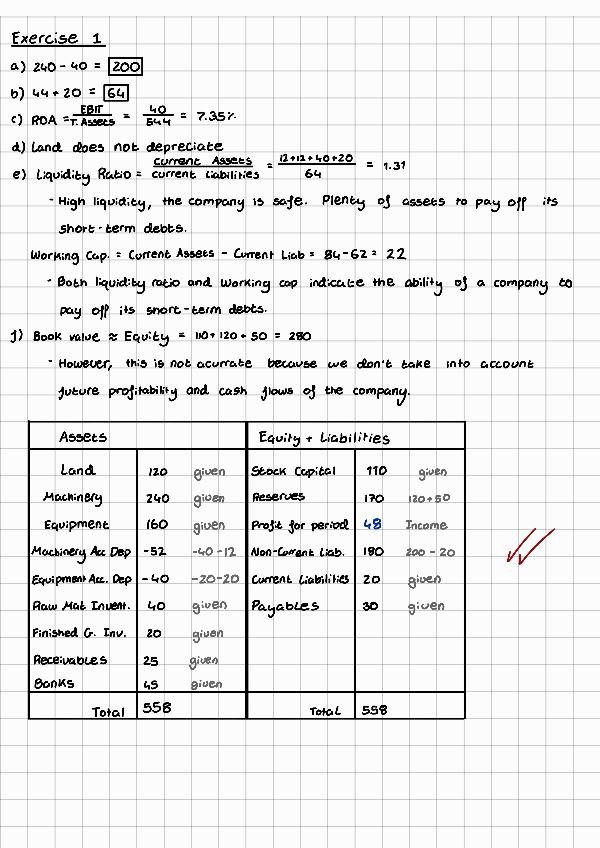 Exercise 1
a) 240 - 40 = 200
b) 44 + 20 = 64
c) ROA = EBIT / T. Assets = 40 / 544 = 7.35%
d) Land does not depreciate
e) Liquidity Ratio = current Assets / current Liabilities = 12+12+40+20 / 64 = 1.31
- High liquidity, the company is safe. Plenty of assets to pay off its
short-term debts.
Working Cap. = Current Assets - Current Liab = 84-62 = 22
- Both liquidity ratio and working cap indicate the ability of a company to
pay off its short-term debts.
f) Book value ≈ Equity = 110+120+50 = 280
- However, this is not acurrate because we don't take into account
future profitability and cash flows of the company.
Assets Equity + Liabilities
Land 120 given Stock Capital 110 given
Machinery 240 given Reserves 170 120+50
Equipment 160 given Profit for period 48 Income
Machinery Acc Dep -52 -40-12 Non-Current Liab. 180 200-20
Equipment Acc. Dep -40 -20-20 Current Liabilities 20 given
Raw Mat Invent. 40 given Payables 30 given
Finished G. Inv. 20 given
Receivables 25 given
Banks 45 given
Total 558 Total 558